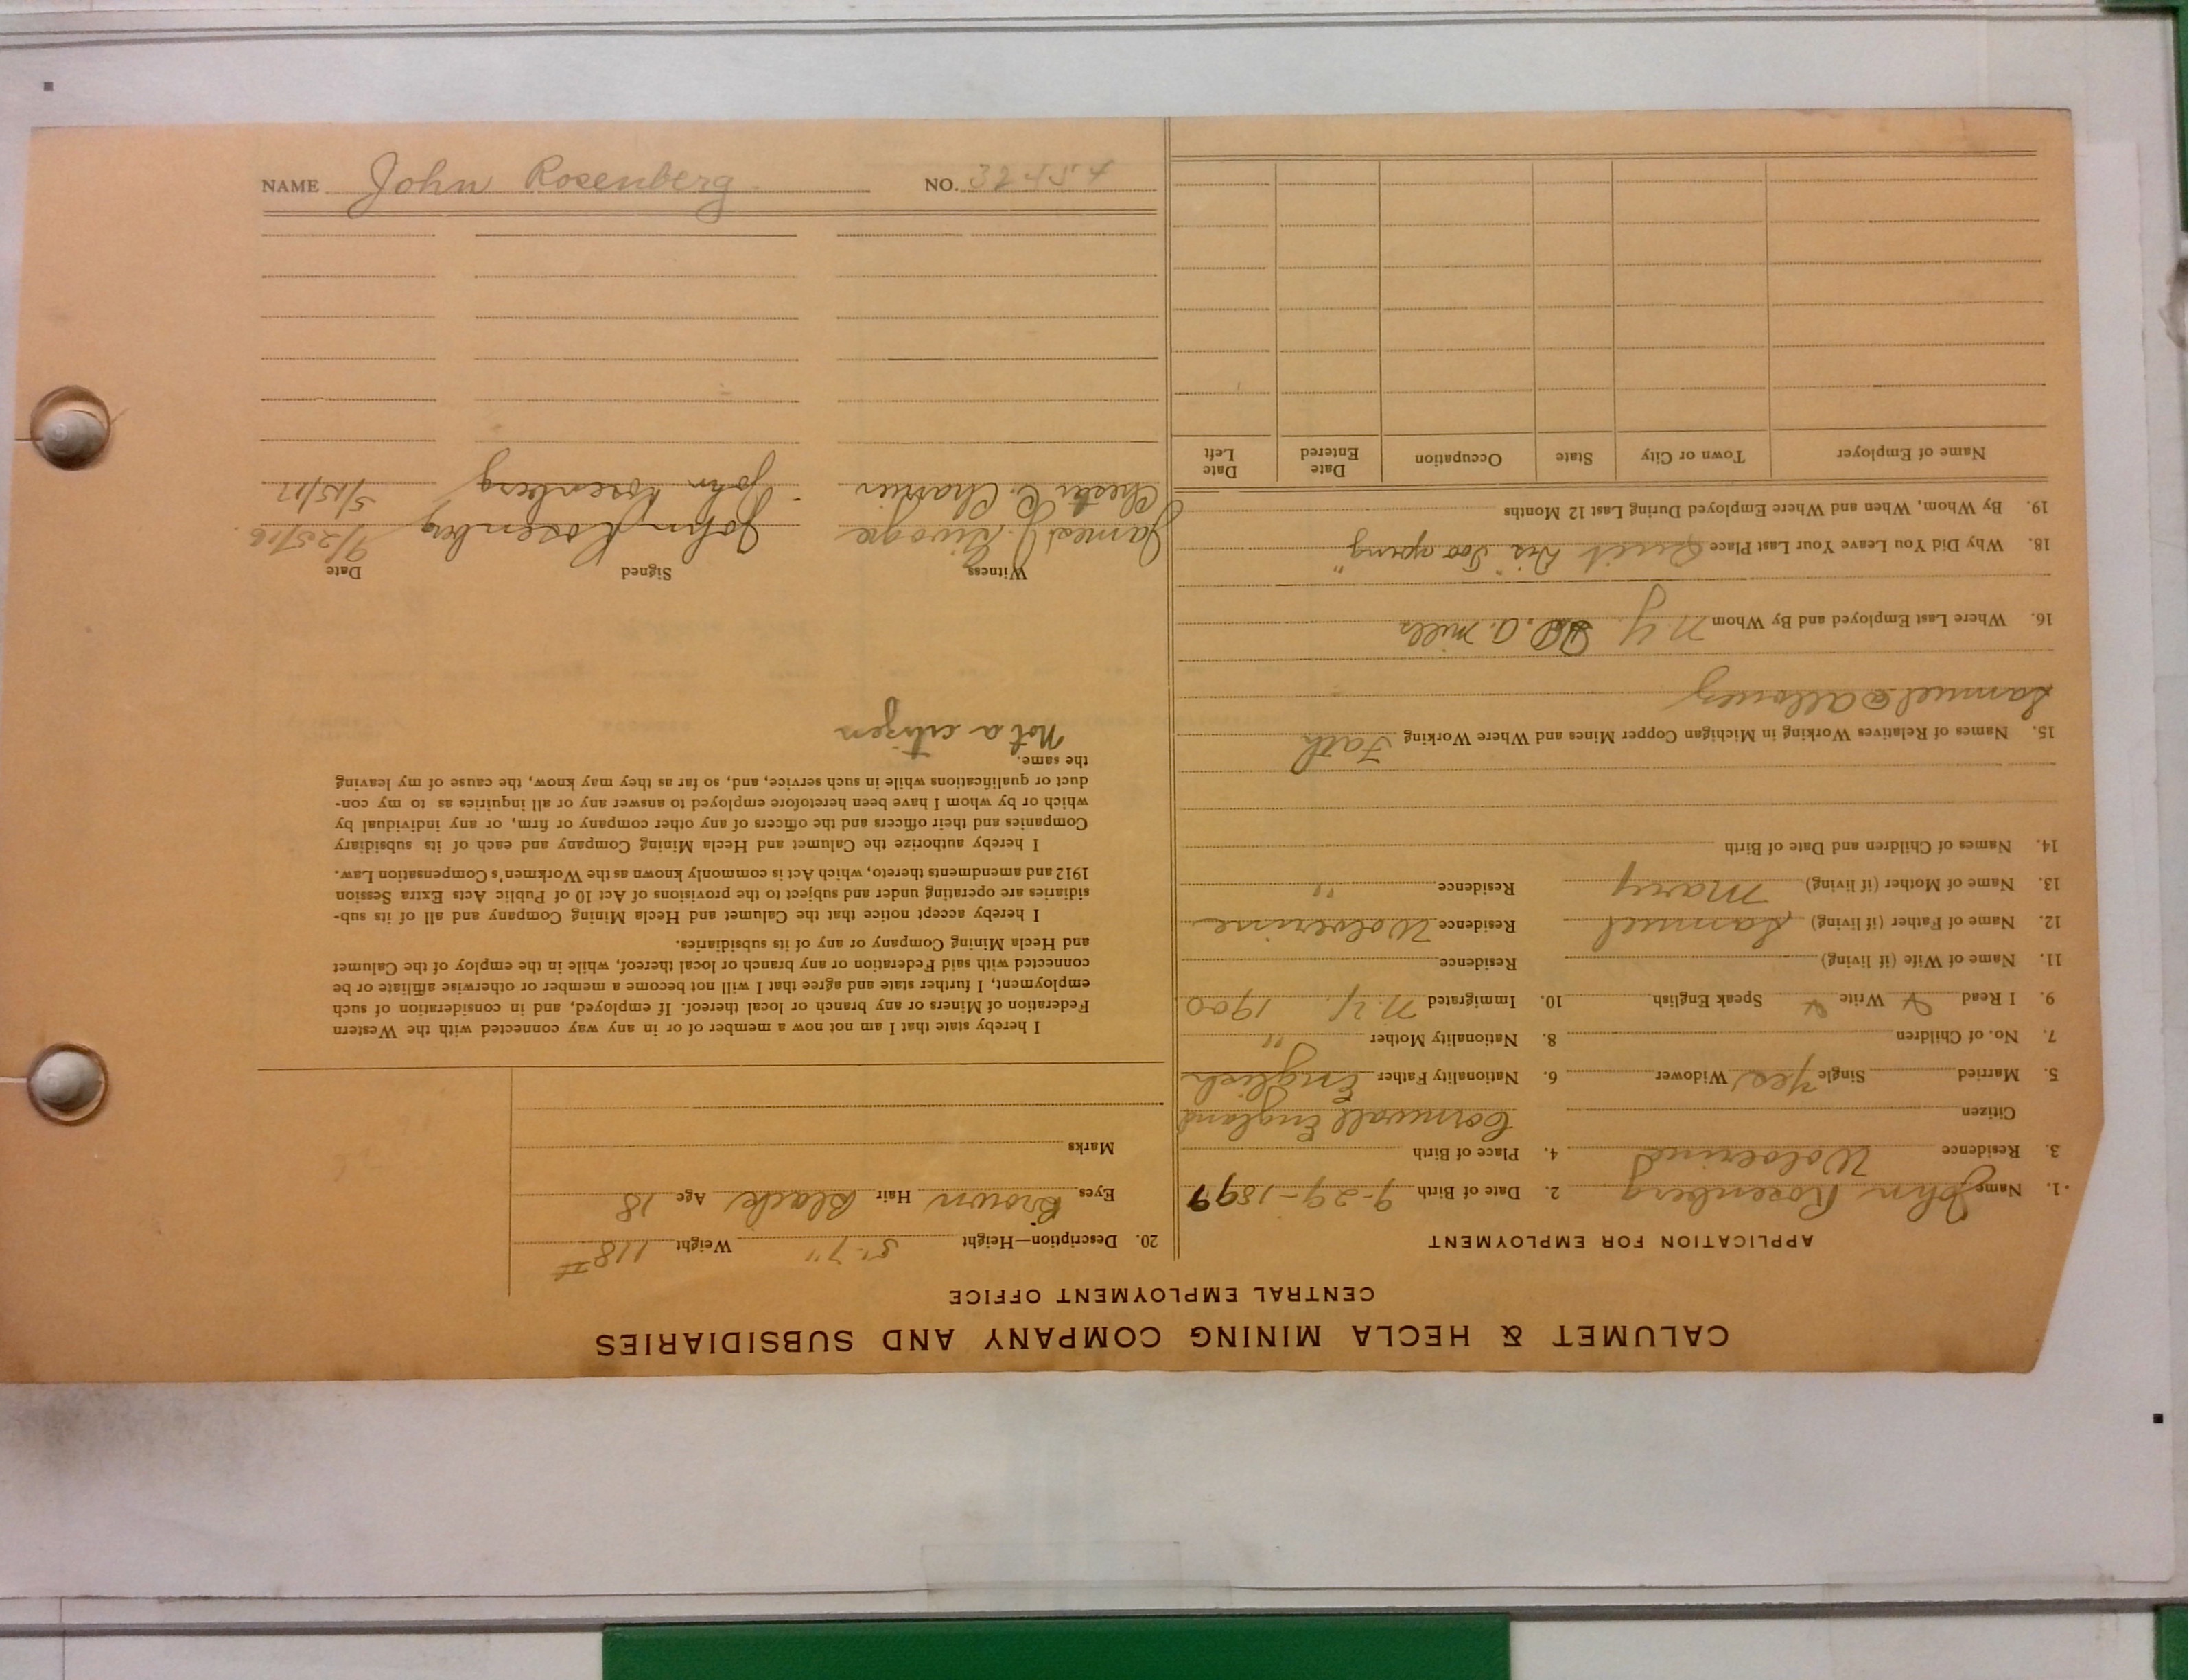 NAME John Rosenberg NO. 32454
CALUMET & HECLA MINING COMPANY AND SUBSIDIARIES
CENTRAL EMPLOYMENT OFFICE
APPLICATION FOR EMPLOYMENT
1. Name John Rosenberg 2. Date of Birth 9-29-1897
3. Residence Wolverine 4. Place of Birth
Citizen Cornwall England
5. Married Single Yes Widower 6. Nationality Father English
7. No. of Children 8. Nationality Mother "
9. I Read Write Speak English 10. Immigrated N.Y. 1900
11. Name of Wife (if living) Residence
12. Name of Father (if living) Samuel Residence Wolverine
13. Name of Mother (if living) Mary Residence "
14. Names of Children and Date of Birth
15. Names of Relatives Working in Michigan Copper Mines and Where Working Fath
Samuel @ Allouez
16. Where Last Employed and By Whom N.Y. mills
18. Why Did You Leave Your Last Place Quit
19. By Whom, When and Where Employed During Last 12 Months
Name of Employer Town or City State Occupation Date Entered Date Left
20. Description—Height 5'-7" Weight 118#
Eyes Brown Hair Black Age 18
Marks
I hereby state that I am not now a member of or in any way connected with the Western
Federation of Miners or any branch or local thereof. If employed, and in consideration of such
employment, I further state and agree that I will not become a member or otherwise affiliate or be
connected with said Federation or any branch or local thereof, while in the employ of the Calumet
and Hecla Mining Company or any of its subsidiaries.
I hereby accept notice that the Calumet and Hecla Mining Company and all of its sub-
sidiaries are operating under and subject to the provisions of Act 10 of Public Acts Extra Session
1912 and amendments thereto, which Act is commonly known as the Workmen's Compensation Law.
I hereby authorize the Calumet and Hecla Mining Company and each of its subsidiary
Companies and their officers and the officers of any other company or firm, or any individual by
which or by whom I have been heretofore employed to answer any or all inquiries as to my con-
duct or qualifications while in such service, and, so far as they may know, the cause of my leaving
the same.
Not a citizen
Witness Signed Date
James J. John Rosenberg 9/25/16
Chester C. John Rosenberg 5/15/17